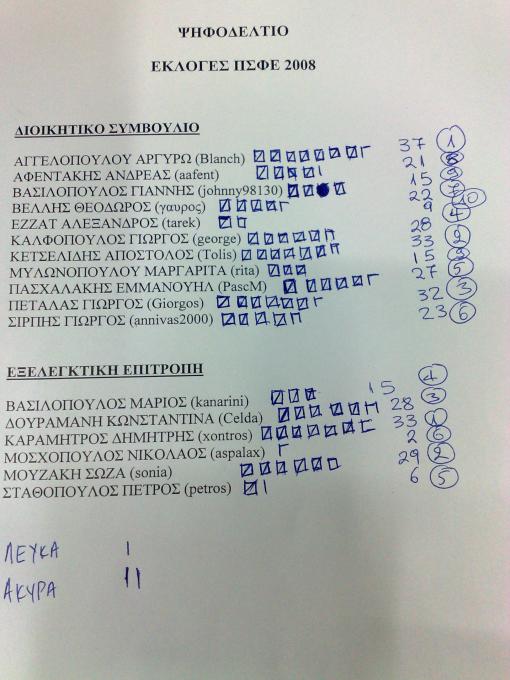 ΨΗΦΟΔΕΛΤΙΟ
ΕΚΛΟΓΕΣ ΠΣΦΕ 2008
ΔΙΟΙΚΗΤΙΚΟ ΣΥΜΒΟΥΛΙΟ
ΑΓΓΕΛΟΠΟΥΛΟΥ ΑΡΓΥΡΩ (Blanch) 37 1
ΑΦΕΝΤΑΚΗΣ ΑΝΔΡΕΑΣ (aafent) 21
ΒΑΣΙΛΟΠΟΥΛΟΣ ΓΙΑΝΝΗΣ (johnny98130) 15
ΒΕΛΛΗΣ ΘΕΟΔΩΡΟΣ (γαυρος) 22
ΕΖΖΑΤ ΑΛΕΞΑΝΔΡΟΣ (tarek) 9 10
ΚΑΛΦΟΠΟΥΛΟΣ ΓΙΩΡΓΟΣ (george) 28 4
ΚΕΤΣΕΛΙΔΗΣ ΑΠΟΣΤΟΛΟΣ (Tolis) 33 2
ΜΥΛΩΝΟΠΟΥΛΟΥ ΜΑΡΓΑΡΙΤΑ (rita) 15
ΠΑΣΧΑΛΑΚΗΣ ΕΜΜΑΝΟΥΗΛ (PascM) 27 5
ΠΕΤΑΛΑΣ ΓΙΩΡΓΟΣ (Giorgos) 32 3
ΣΙΡΠΗΣ ΓΙΩΡΓΟΣ (annivas2000) 23 6
ΕΞΕΛΕΓΚΤΙΚΗ ΕΠΙΤΡΟΠΗ
ΒΑΣΙΛΟΠΟΥΛΟΣ ΜΑΡΙΟΣ (kanarini) 15 4
ΔΟΥΡΑΜΑΝΗ ΚΩΝΣΤΑΝΤΙΝΑ (Celda) 28 3
ΚΑΡΑΜΗΤΡΟΣ ΔΗΜΗΤΡΗΣ (xontros) 33 1
ΜΟΣΧΟΠΟΥΛΟΣ ΝΙΚΟΛΑΟΣ (aspalax) 2 6
ΜΟΥΖΑΚΗ ΣΩΖΑ (sonia) 29 2
ΣΤΑΘΟΠΟΥΛΟΣ ΠΕΤΡΟΣ (petros) 6 5
ΛΕΥΚΑ I
ΑΚΥΡΑ II